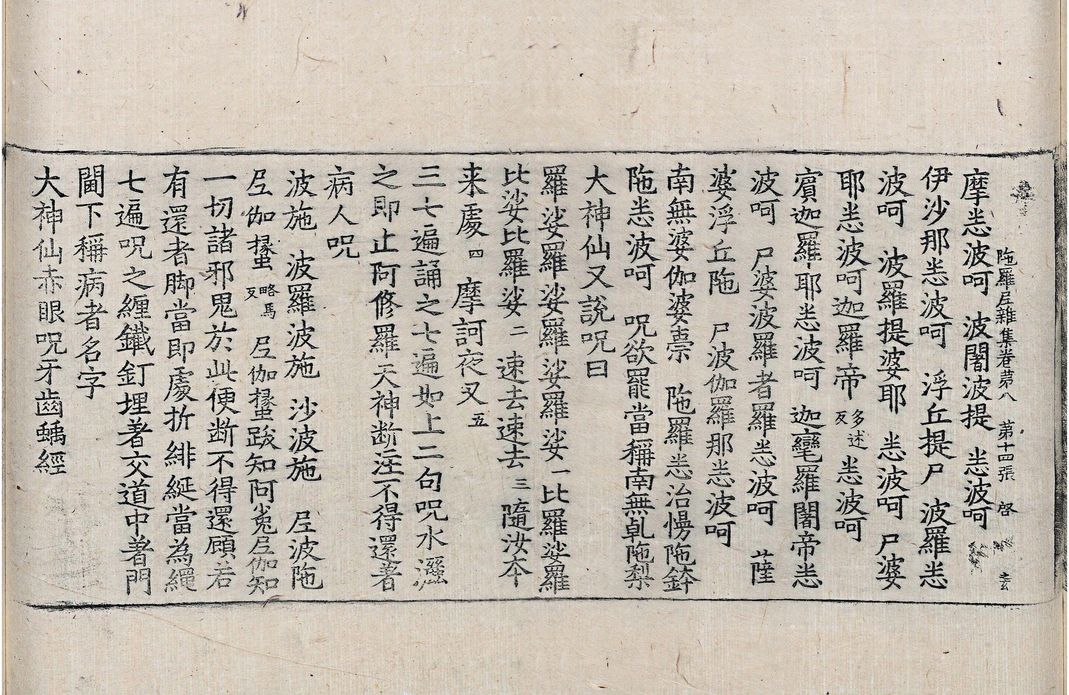 陁羅尼雜集卷第八 第十四張 啓
摩恙波呵 波闍波提 恙波呵
伊沙那恙波呵 浮丘提尸 波羅恙
波呵 波羅提婆耶 恙波呵 尸婆
耶恙波呵迦羅帝多迷反恙波呵
賓迦羅耶恙波呵 迦毟羅闍帝恙
波呵 尸婆波羅者羅恙波呵 薩
婆浮丘陁 尸波伽羅那恙波呵
南無婆伽婆 陁羅恙治愣陁
陁恙波呵 呪欲罷當稱南無乹陁梨
大神仙又說呪曰
羅娑羅娑羅娑羅娑一比羅娑羅
比娑比羅娑二 速去速去三 隨汝夲
来處四 摩訶夜叉五
三七遍誦之七遍如上二句呪水灑
之即止阿修羅天神断注不得還著
病人呪
波施 波羅波施 沙波施 尼波陁
尼伽 略馬反 尼伽 跋知阿 尼伽知
一切諸邪鬼於此便断不得還顧若
有還者脚當即處折緋綖當為繩
七遍呪之纏鐵釘埋著交道中著門
閫下稱病者名字
大神仙赤眼呪牙齒蝺經